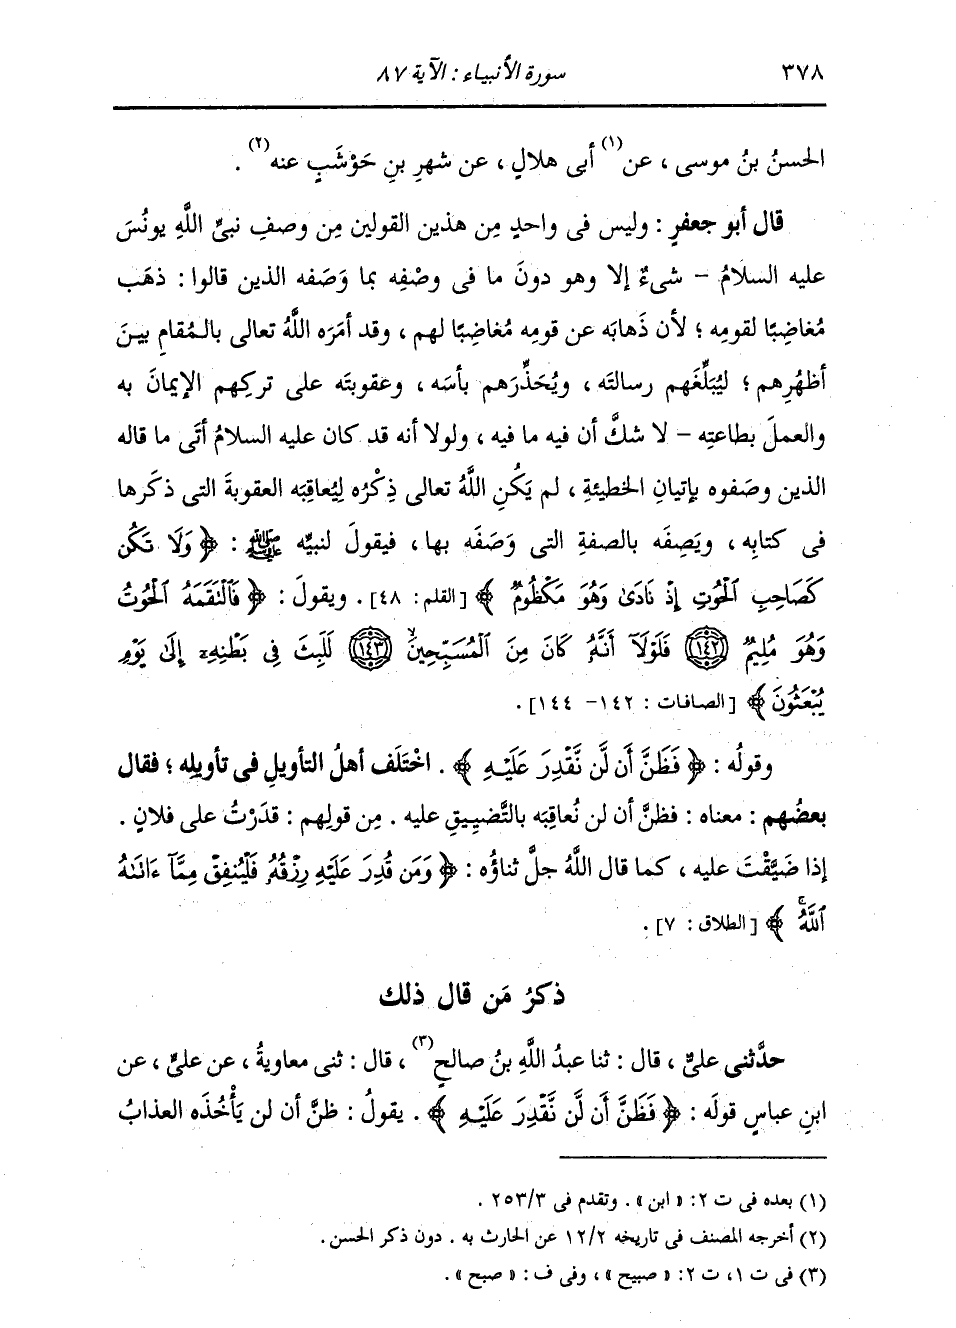 ٣٧٨ سورة الأنبياء : الآية ٨٧
الحسنُ بنُ موسى ، عن(١) أبى هلالٍ ، عن شهرِ بنِ حَوْشَبٍ عنه(٢) .
قال أبو جعفرٍ : وليس فى واحدٍ مِن هذين القولين مِن وصفِ نبيِّ اللَّهِ يونُسَ
عليه السلامُ - شىءٌ إلا وهو دونَ ما فى وصْفِه بما وَصَفه الذين قالوا : ذهَب
مُغاضِبًا لقومِه ؛ لأن ذَهابَه عن قومِه مُغاضِبًا لهم ، وقد أمَرَه اللَّهُ تعالى بالـمُقامِ بينَ
أظهُرِهم ؛ ليُبَلِّغَهم رسالتَه ، ويُحَذِّرَهم بأسَه ، وعقوبتَه على تركِهم الإيمانَ به
والعملَ بطاعتِه - لا شكَّ أن فيه ما فيه ، ولولا أنه قد كان عليه السلامُ أتَى ما قاله
الذين وصَفوه بإتيانِ الخطيئةِ ، لم يَكُنِ اللَّهُ تعالى ذِكْرُه لِيُعاقِبَه العقوبةَ التى ذكَرها
فى كتابِه ، ويَصِفَه بالصفةِ التى وَصَفَه بها ، فيقولَ لنبيِّه ﷺ : ﴿ وَلَا تَكُن
كَصَاحِبِ ٱلْحُوتِ إِذْ نَادَىٰ وَهُوَ مَكْظُومٌ ﴾ [القلم: ٤٨] . ويقولَ : ﴿ فَٱلْتَقَمَهُ ٱلْحُوتُ
وَهُوَ مُلِيمٌ (١٤٢) فَلَوْلَآ أَنَّهُۥ كَانَ مِنَ ٱلْمُسَبِّحِينَۙ (١٤٣) لَلَبِثَ فِى بَطْنِهِۦٓ إِلَىٰ يَوْمِ
يُبْعَثُونَ ﴾ [الصافات : ١٤٢- ١٤٤] .
وقولُه : ﴿ فَظَنَّ أَن لَّن نَّقْدِرَ عَلَيْهِ ﴾ . اختَلَف أهلُ التأويلِ فى تأويلِه ؛ فقال
بعضُهم : معناه : فظنَّ أن لن نُعاقِبَه بالتَّضييقِ عليه . مِن قولِهم : قدَرْتُ على فلانٍ .
إذا ضَيَّقْتَ عليه ، كما قال اللَّهُ جلَّ ثناؤُه : ﴿ وَمَن قُدِرَ عَلَيْهِ رِزْقُهُۥ فَلْيُنفِقْ مِمَّآ ءَاتَىٰهُ
ٱللَّهُۚ ﴾ [الطلاق : ٧] .
ذكرُ مَن قال ذلك
حدَّثنى علىٌّ ، قال : ثنا عبدُ اللَّهِ بنُ صالحٍ(٣) ، قال : ثنى معاويةُ ، عن علىٍّ ، عن
ابنِ عباسٍ قولَه : ﴿ فَظَنَّ أَن لَّن نَّقْدِرَ عَلَيْهِ ﴾ . يقولُ : ظنَّ أن لن يَأْخُذَه العذابُ
(١) بعده فى ت ٢: « ابن » . وتقدم فى ٢٥٣/٣ .
(٢) أخرجه المصنف فى تاريخه ١٢/٢ عن الحارث به . دون ذكر الحسن .
(٣) فى ت ١، ت ٢: « صبيح » ، وفى ف : « صبح » .